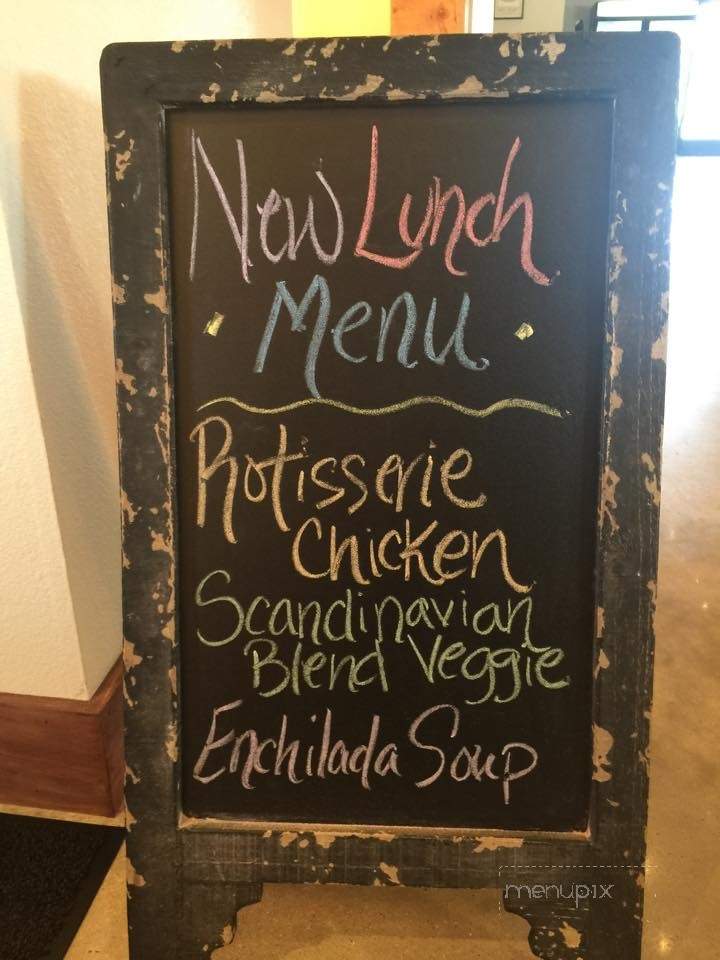 New Lunch
Menu
Rotisserie
Chicken
Scandinavian
Blend Veggie
Enchilada Soup
menupix